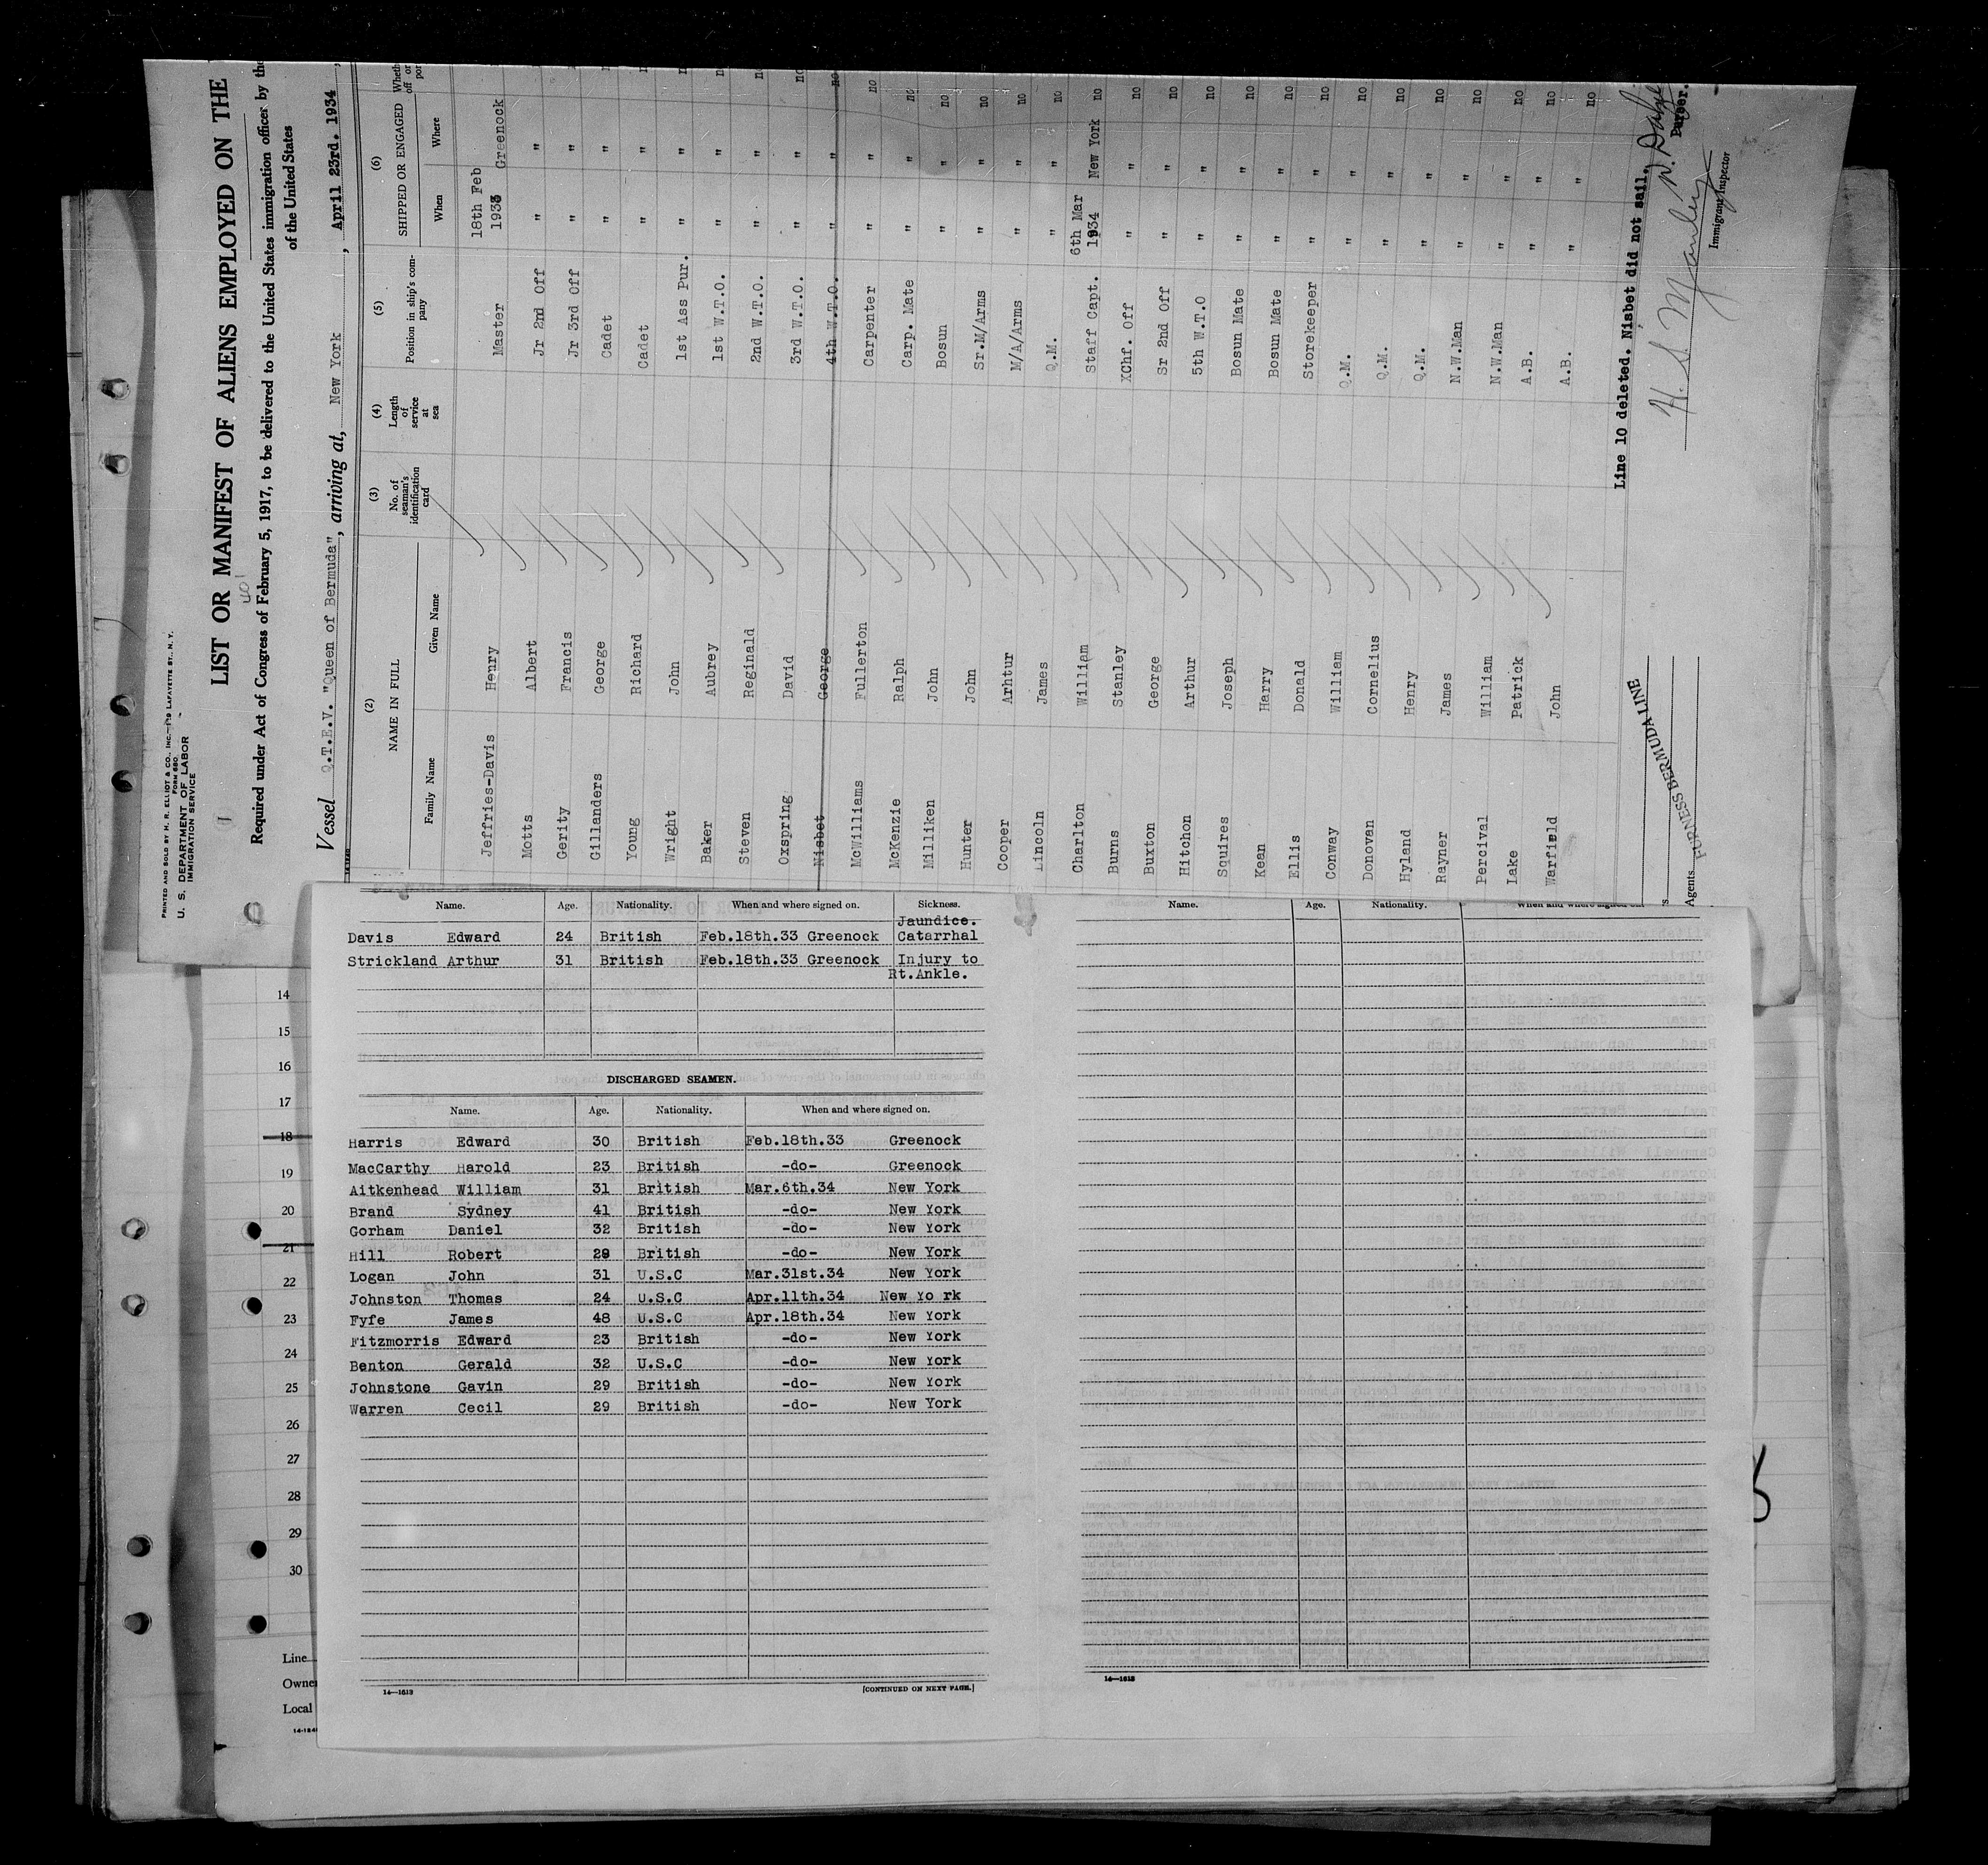 PRINTED AND SOLD BY H. R. ELLIOT & CO., INC.—119 LAFAYETTE ST., N. Y.
FORM 680
U. S. DEPARTMENT OF LABOR
IMMIGRATION SERVICE
LIST OR MANIFEST OF ALIENS EMPLOYED ON THE
Required under Act of Congress of February 5, 1917, to be delivered to the United States immigration officer by the
of the United States
Vessel Q.T.E.V. "Queen of Bermuda", arriving at, New York, April 23rd. 1934,
(2) (3) (4) (5) (6)
NAME IN FULL No. of seaman's identification card Length of service at sea Position in ship's company SHIPPED OR ENGAGED
Family Name Given Name When Where
Jeffries-Davis Henry Master 18th Feb 1933 Greenock
Motts Albert Jr 2nd Off " "
Gerity Francis Jr 3rd Off " "
Gillanders George Cadet " "
Young Richard Cadet " "
Wright John 1st Ass Pur. " "
Baker Aubrey 1st W.T.O. " "
Steven Reginald 2nd W.T.O. " "
Oxspring David 3rd W.T.O. " " no
Nisbet George 4th W.T.O. " " no
McWilliams Fullerton Carpenter " " no
McKenzie Ralph Carp. Mate " " no
Milliken John Bosun " " no
Hunter John Sr.M/Arms " " no
Cooper Arhtur M/A/Arms " " no
Lincoln James Q.M. " " no
Charlton William Staff Capt. 6th Mar 1934 New York no
Burns Stanley XChf. Off " " no
Buxton George Sr 2nd Off " " no
Hitchon Arthur 5th W.T.O " " no
Squires Joseph Bosun Mate " " no
Kean Harry Bosun Mate " " no
Ellis Donald Storekeeper " " no
Conway William Q.M. " " no
Donovan Cornelius Q.M. " " no
Hyland Henry Q.M. " " no
Rayner James N.W.Man " " no
Percival William N.W.Man " " no
Lake Patrick A.B. " " no
Warfield John A.B. " " no
Line 10 deleted. Nisbet did not sail.
Purser.
Immigrant Inspector
Agents FURNESS BERMUDA LINE
Name. Age. Nationality. When and where signed on. Sickness.
Jaundice.
Davis Edward 24 British Feb.18th.33 Greenock Catarrhal
Strickland Arthur 31 British Feb.18th.33 Greenock Injury to
Rt.Ankle.
DISCHARGED SEAMEN.
Name. Age. Nationality. When and where signed on.
Harris Edward 30 British Feb.18th.33 Greenock
MacCarthy Harold 23 British -do- Greenock
Aitkenhead William 31 British Mar.6th.34 New York
Brand Sydney 41 British -do- New York
Gorham Daniel 32 British -do- New York
Hill Robert 29 British -do- New York
Logan John 31 U.S.C Mar.31st.34 New York
Johnston Thomas 24 U.S.C Apr.11th.34 New Yo rk
Fyfe James 48 U.S.C Apr.18th.34 New York
Fitzmorris Edward 23 British -do- New York
Benton Gerald 32 U.S.C -do- New York
Johnstone Gavin 29 British -do- New York
Warren Cecil 29 British -do- New York
14—1613 [CONTINUED ON NEXT PAGE.]
Name. Age. Nationality. When and where signed on.
14—1613
14
15
16
17
18
19
20
21
22
23
24
25
26
27
28
29
30
Line
Owner
Local